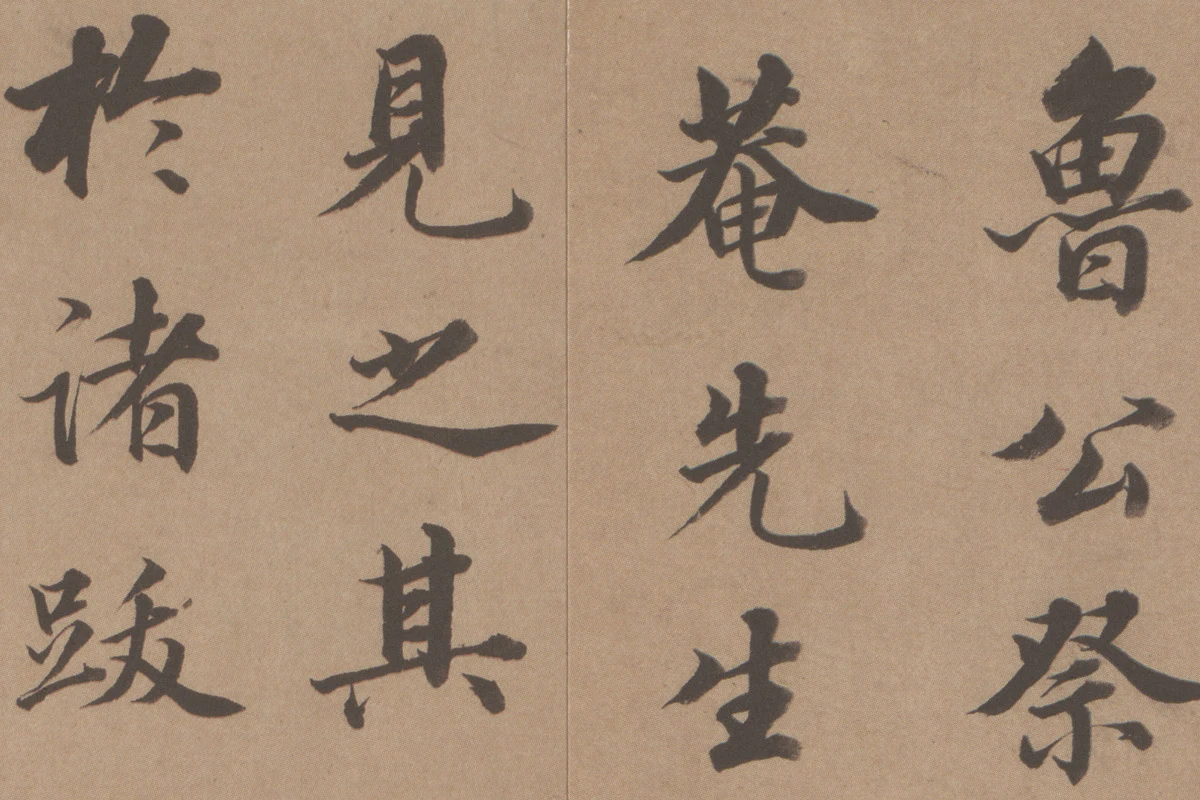 魯公祭
菴先生
見之其
於諸跋